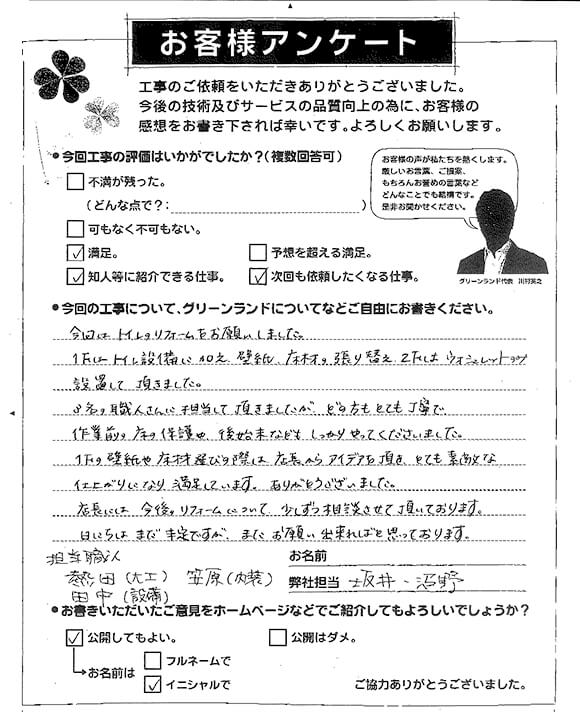 お客様アンケート
工事のご依頼をいただきありがとうございました。
今後の技術及びサービスの品質向上の為に、お客様の
感想をお書き下されば幸いです。よろしくお願いします。
●今回工事の評価はいかがでしたか?(複数回答可)
不満が残った。
(どんな点で?: )
可もなく不可もない。
満足。
予想を超える満足。
知人等に紹介できる仕事。
次回も依頼したくなる仕事。
お客様の声が私たちを熱くします。
厳しいお言葉、ご提案、
もちろんお誉めの言葉など
どんなことでも結構です。
是非お聞かせください。
グリーンランド代表 川村英之
●今回の工事について、グリーンランドについてなどご自由にお書きください。
今回はトイレのリフォームをお願いしました。
1Fはトイレ設備に加え、壁紙、床材の張り替え、2Fはウォシュレットのみ
設置して頂きました。
3名の職人さんに担当して頂きましたが、どの方もとても丁寧で
作業前の床の保護や、後始末などもしっかりやってくださいました。
1Fの壁紙や床材選びの際は、店長からアイデアを頂き、とても素敵な
仕上がりになり満足しています。ありがとうございました。
店長には今後のリフォームについて少しずつ相談させて頂いております。
日にちはまだ未定ですが、またお願い出来ればと思っております。
担当職人
熱田(大工) 笠原(内装)
田中(設備)
お名前
弊社担当 坂井・沼野
●お書きいただいたご意見をホームページなどでご紹介してもよろしいでしょうか?
公開してもよい。
公開はダメ。
お名前は
フルネームで
イニシャルで
ご協力ありがとうございました。